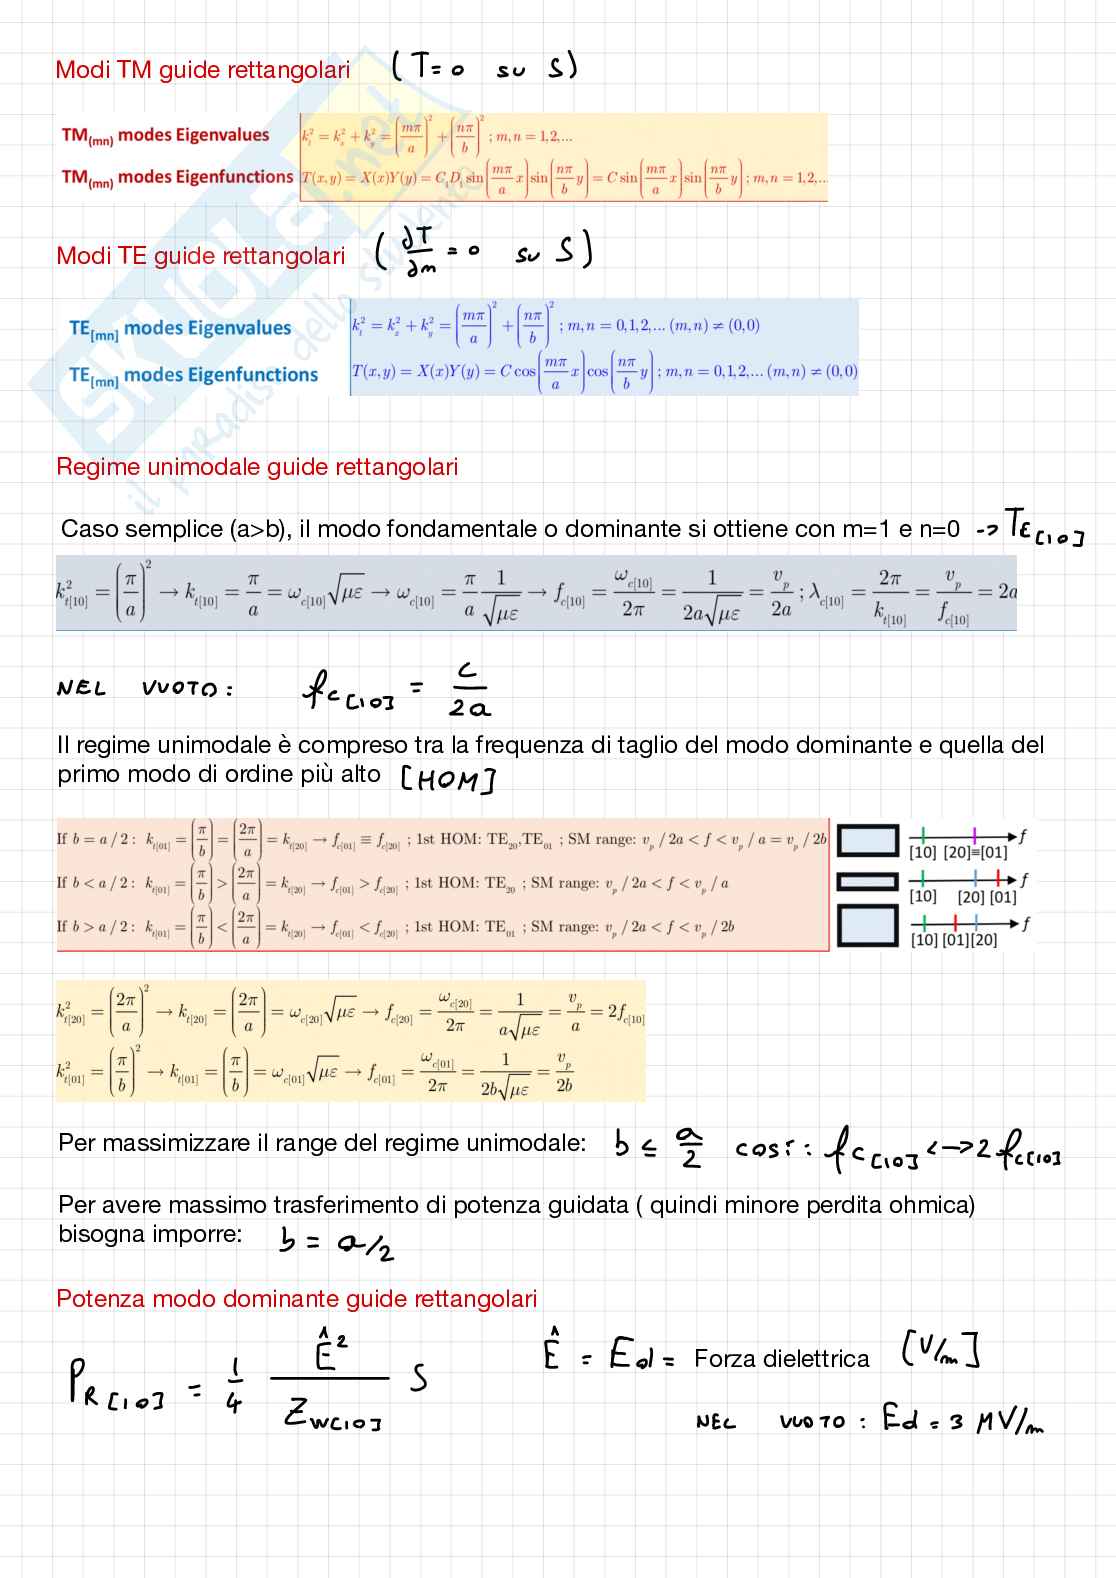 Modi TM guide rettangolari (T=0 su S)
TM(mn) modes Eigenvalues k_t^2 = k_x^2 + k_y^2 = (mπ/a)^2 + (nπ/b)^2 ; m, n = 1,2,...
TM(mn) modes Eigenfunctions T(x,y) = X(x)Y(y) = C_1D_1 sin(mπ/a x) sin(nπ/b y) = C sin(mπ/a x) sin(nπ/b y) ; m, n = 1,2,...
Modi TE guide rettangolari (∂T/∂n = 0 su S)
TE[mn] modes Eigenvalues k_t^2 = k_x^2 + k_y^2 = (mπ/a)^2 + (nπ/b)^2 ; m, n = 0,1,2,... (m, n) ≠ (0,0)
TE[mn] modes Eigenfunctions T(x,y) = X(x)Y(y) = C cos(mπ/a x) cos(nπ/b y) ; m, n = 0,1,2,... (m, n) ≠ (0,0)
SKUOLA.net
il paradiso dello studente
Regime unimodale guide rettangolari
Caso semplice (a>b), il modo fondamentale o dominante si ottiene con m=1 e n=0 -> TE[10]
k_t[10]^2 = (π/a)^2 → k_t[10] = π/a = ω_c[10]√με → ω_c[10] = π/a 1/√με → f_c[10] = ω_c[10]/2π = 1/2a√με = v_p/2a ; λ_c[10] = 2π/k_t[10] = v_p/f_c[10] = 2a
NEL VUOTO: fc[10] = c/2a
Il regime unimodale è compreso tra la frequenza di taglio del modo dominante e quella del
primo modo di ordine più alto [HOM]
If b = a / 2 : k_t[01] = (π/b) = (2π/a) = k_t[20] → f_c[01] ≡ f_c[20] ; 1st HOM: TE_20,TE_01 ; SM range: v_p / 2a < f < v_p / a = v_p / 2b
f
[10] [20]≡[01]
If b < a / 2 : k_t[01] = (π/b) > (2π/a) = k_t[20] → f_c[01] > f_c[20] ; 1st HOM: TE_20 ; SM range: v_p / 2a < f < v_p / a
f
[10] [20] [01]
If b > a / 2 : k_t[01] = (π/b) < (2π/a) = k_t[20] → f_c[01] < f_c[20] ; 1st HOM: TE_01 ; SM range: v_p / 2a < f < v_p / 2b
f
[10] [01][20]
k_t[20]^2 = (2π/a)^2 → k_t[20] = (2π/a) = ω_c[20]√με → f_c[20] = ω_c[20]/2π = 1/a√με = v_p/a = 2f_c[10]
k_t[01]^2 = (π/b)^2 → k_t[01] = (π/b) = ω_c[01]√με → f_c[01] = ω_c[01]/2π = 1/2b√με = v_p/2b
Per massimizzare il range del regime unimodale: b ≤ a/2 così: fc[10] <-> 2 fc[10]
Per avere massimo trasferimento di potenza guidata ( quindi minore perdita ohmica)
bisogna imporre: b = a/2
Potenza modo dominante guide rettangolari
PR[10] = 1/4 Ê²/ZW[10] S Ê = Ed = Forza dielettrica [V/m]
NEL VUOTO: Ed = 3 MV/m